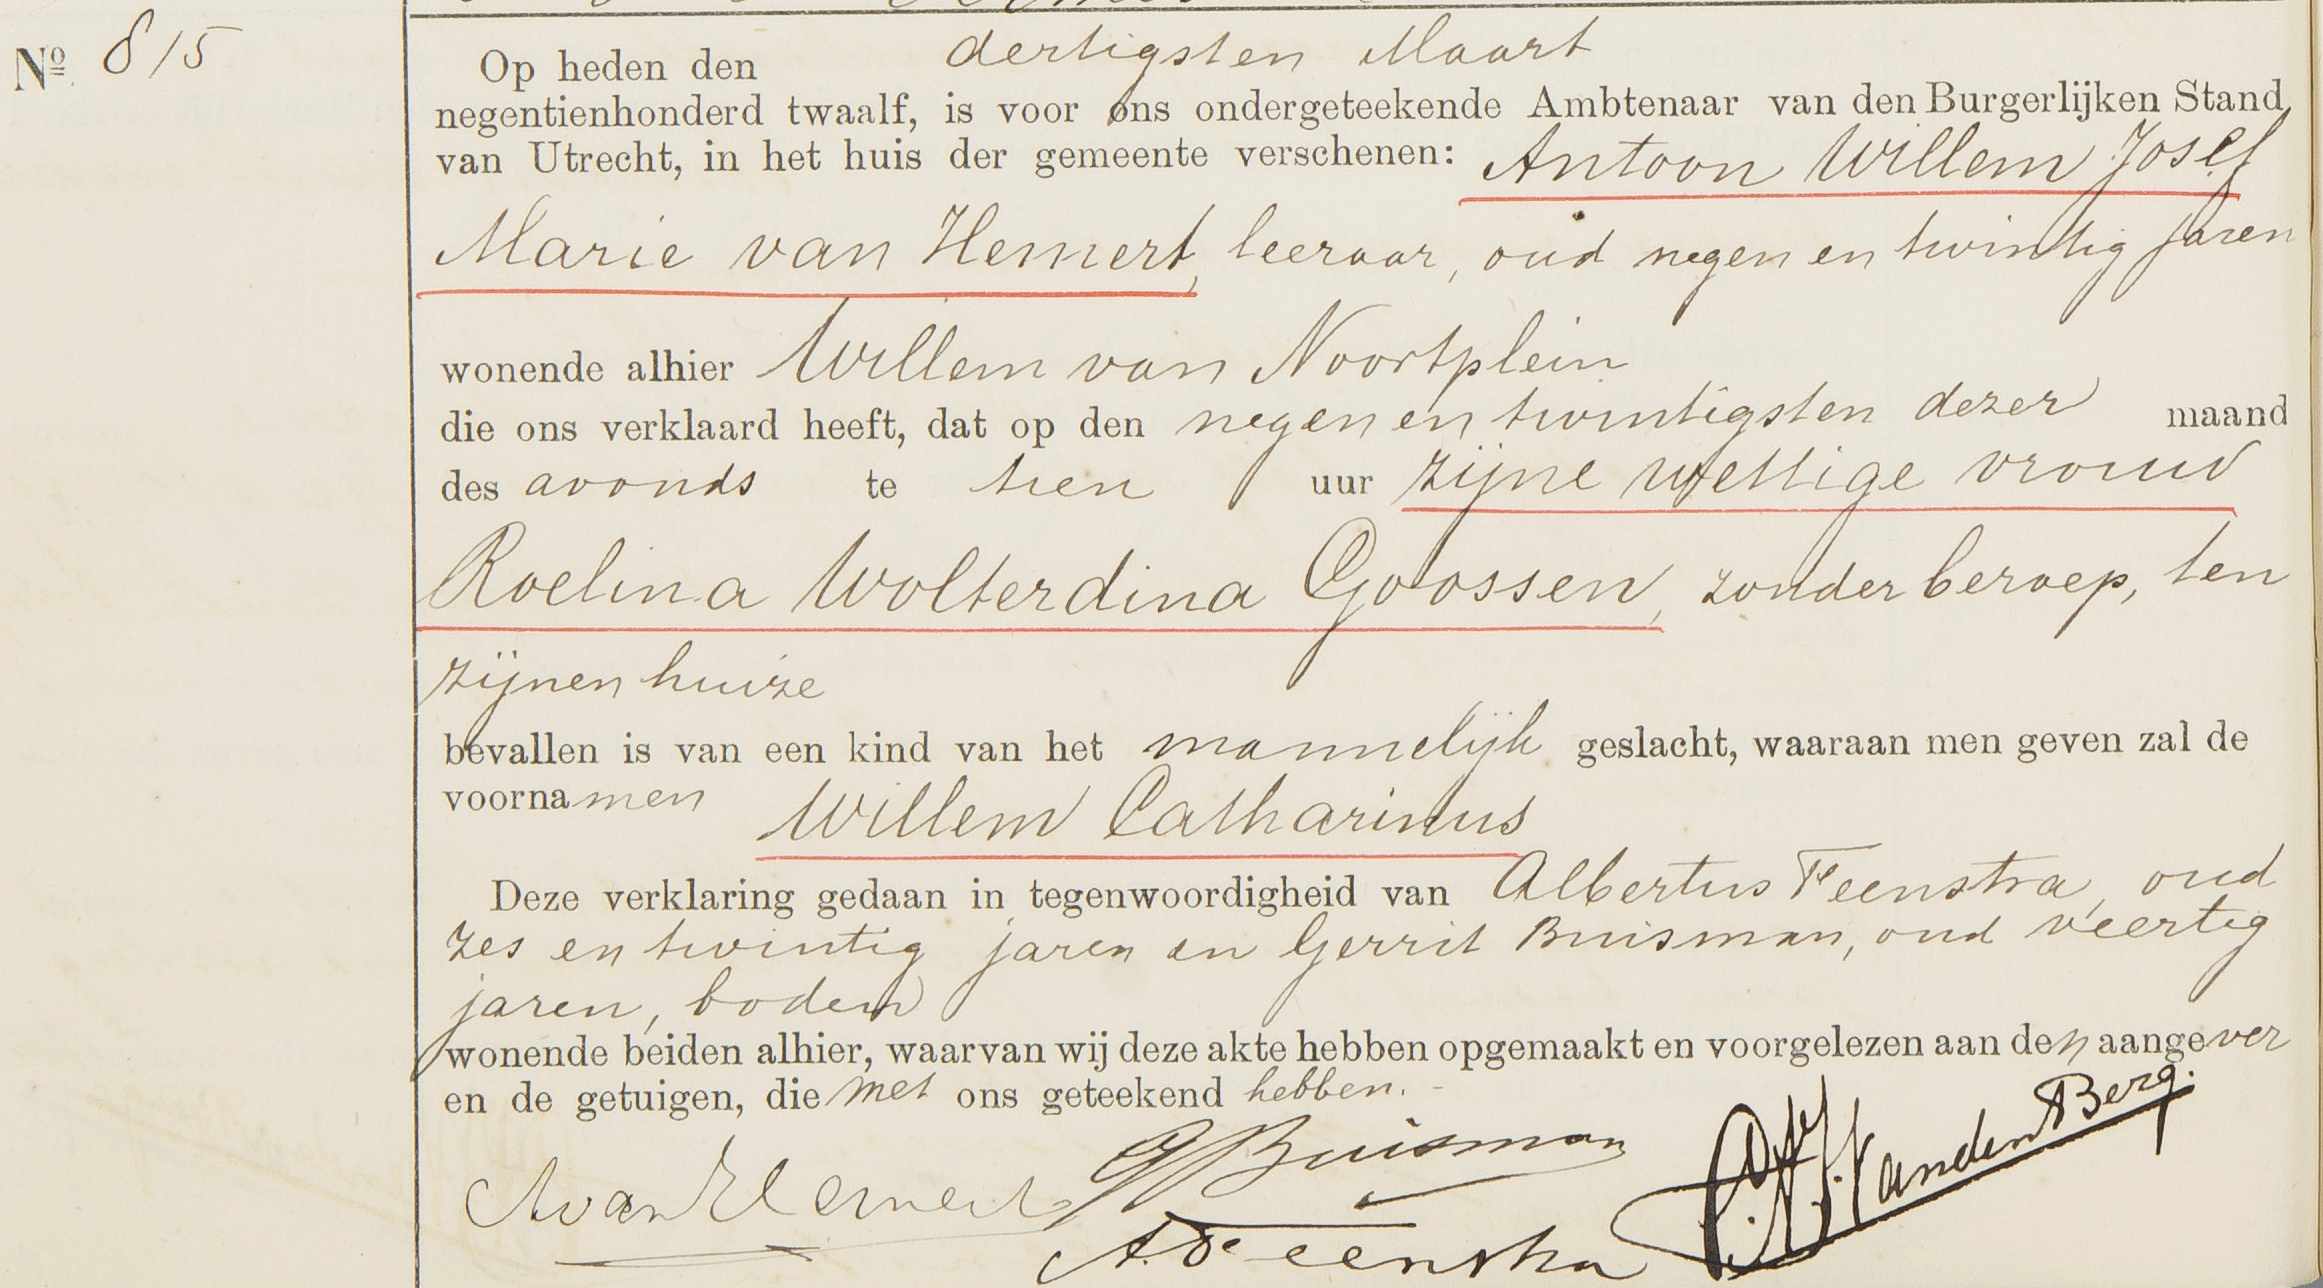 Nº 815
Op heden den dertigsten Maart
negentienhonderd twaalf, is voor ons ondergeteekende Ambtenaar van den Burgerlijken Stand
van Utrecht, in het huis der gemeente verschenen: Antoon Willem Josef
Marie van Hemert, leeraar, oud negen en twintig jaren
wonende alhier Willem van Noortplein
die ons verklaard heeft, dat op den negen en twintigsten dezer maand
des avonds te tien uur zijne wettige vrouw
Roelina Wolterdina Goossen, zonder beroep, ten
zijnen huize
bevallen is van een kind van het mannelijk geslacht, waaraan men geven zal de
voornamen Willem Catharinus
Deze verklaring gedaan in tegenwoordigheid van Albertus Feenstra, oud
zes en twintig jaren en Gerrit Buisman, oud veertig
jaren, bodem
wonende beiden alhier, waarvan wij deze akte hebben opgemaakt en voorgelezen aan den aangever
en de getuigen, die met ons geteekend hebben.
AvanHemert GBuisman VandenBerg.
A. Feenstra